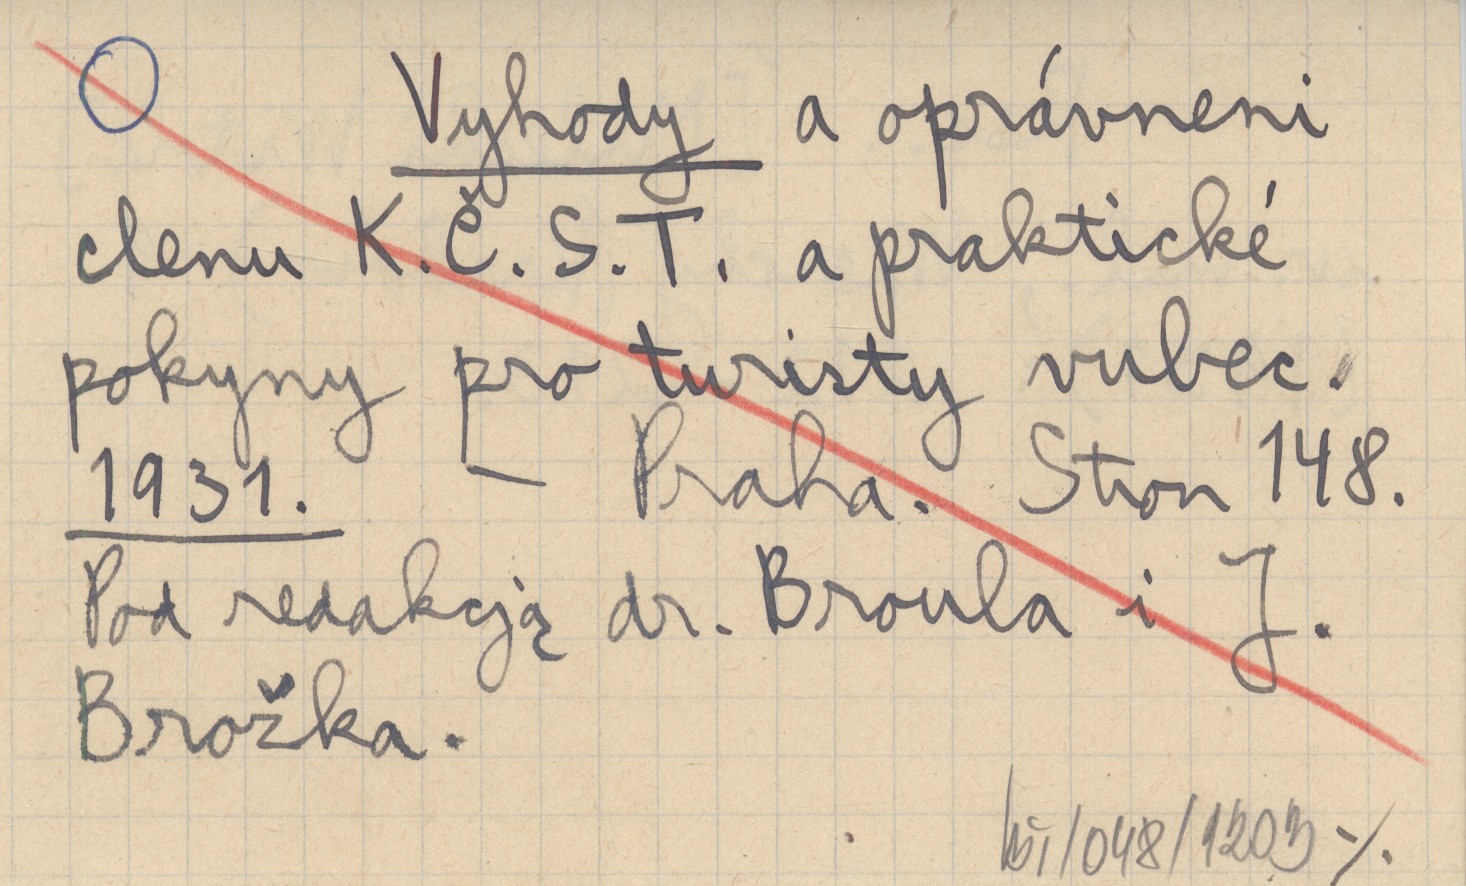 Vyhody a oprávneni
clenu K.Č.S.T. a praktické
pokyny pro turisty vubec.
1931. — Praha. Stron 148.
Pod redakcją dr. Broula i J.
Brožka.
/048/1203